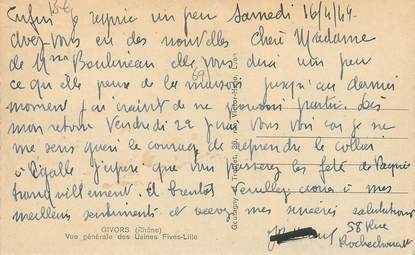 Enfin je respire un peu Samedi 16/4/44.
Avez vous eu des nouvelles Chère Madame
de Mme Bouluneau elle vous dira un peu
ce qu'elle pense de la maison jusqu'au dernier
moment j'ai craint de ne pouvoir partir. Dès
mon retour Vendredi 22 je vous car je ne
me sens guère le courage de reprendre le collier
à j'espère que vous passerez les fêtes de Pâques
tranquillement. Et bientôt veuillez croire à mes
meilleurs sentiments et recevez mes sincères salutations
58 Rue
Rochechouart
GIVORS (Rhône)
Vue générale des Usines Fives-Lille